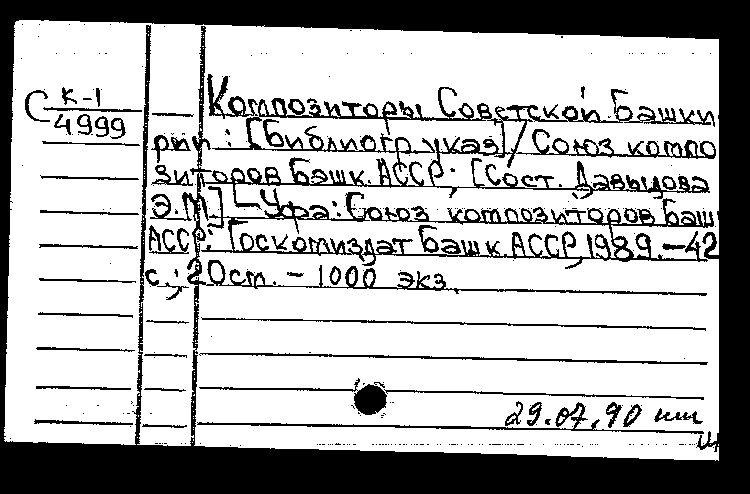 С К-1
4999
Композиторы Советской Башки
рии : [Библиогр. указ] / Союз компо
зиторов Башк. АССР ; [Сост. Давыдова
Э.М.] – Уфа : Союз композиторов Баш
АССР : Госкомиздат Башк. АССР, 1989. – 42
с. ; 20 см. – 1000 экз.
29.07.90